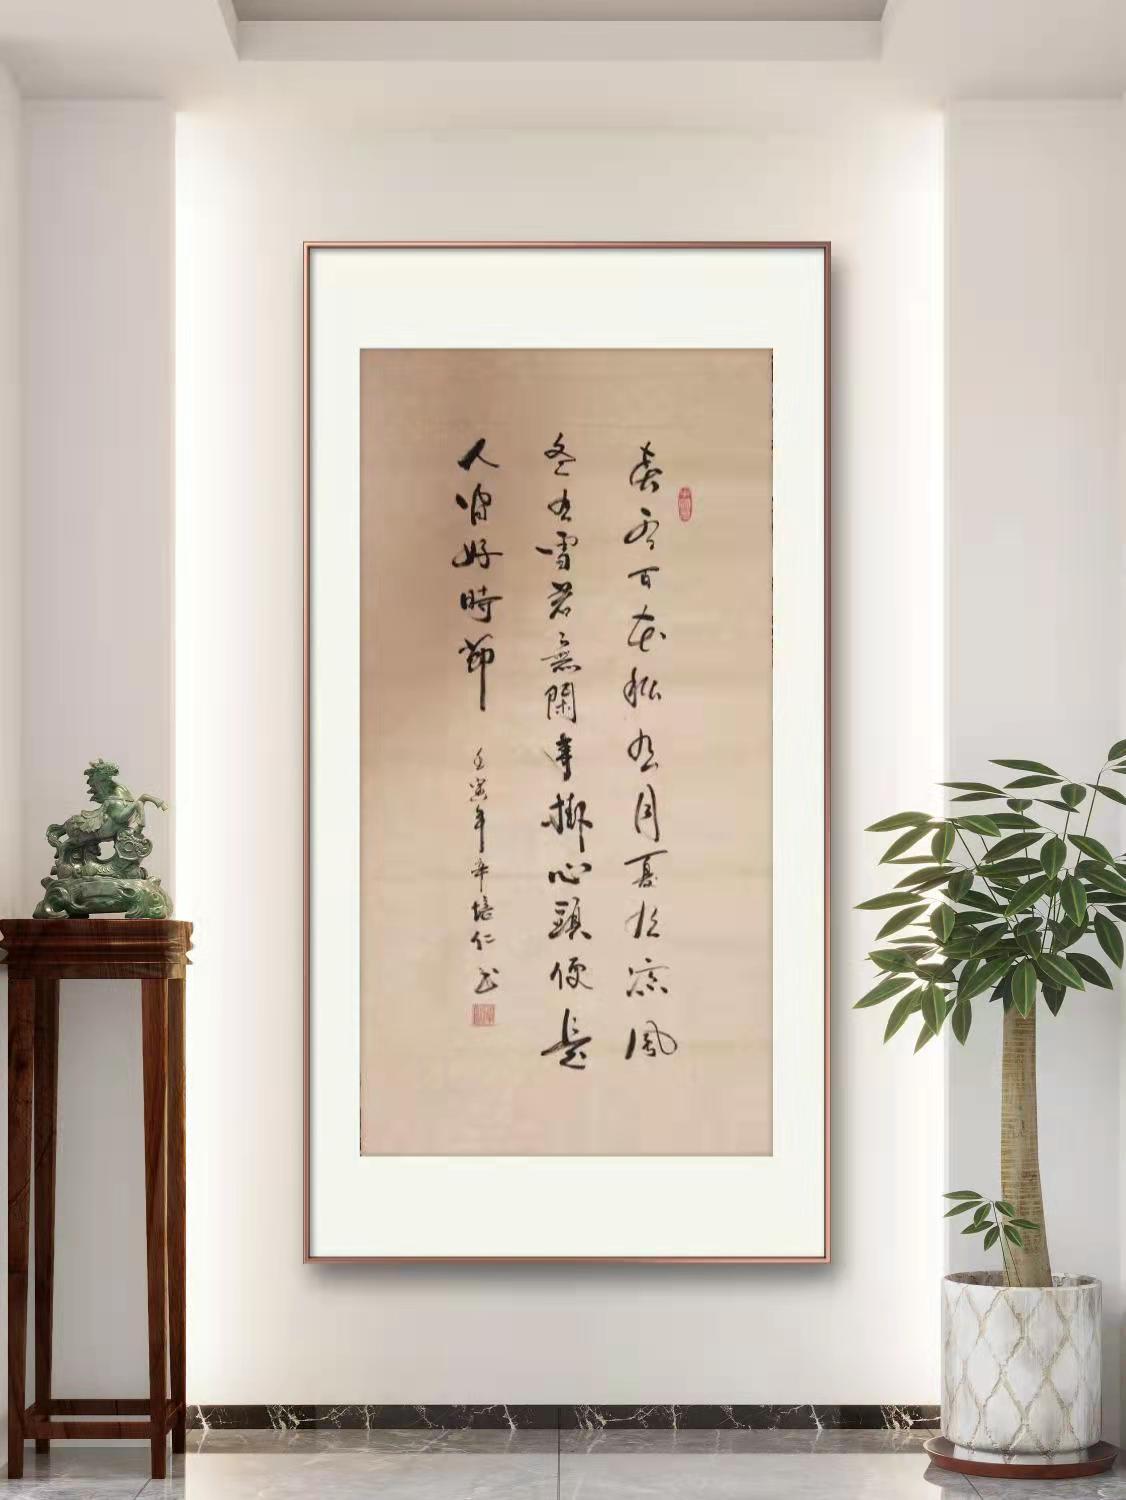 春有百花秋有月夏有凉風
冬有雪若無閑事掛心頭便是
人间好時節
壬寅年辛培仁书